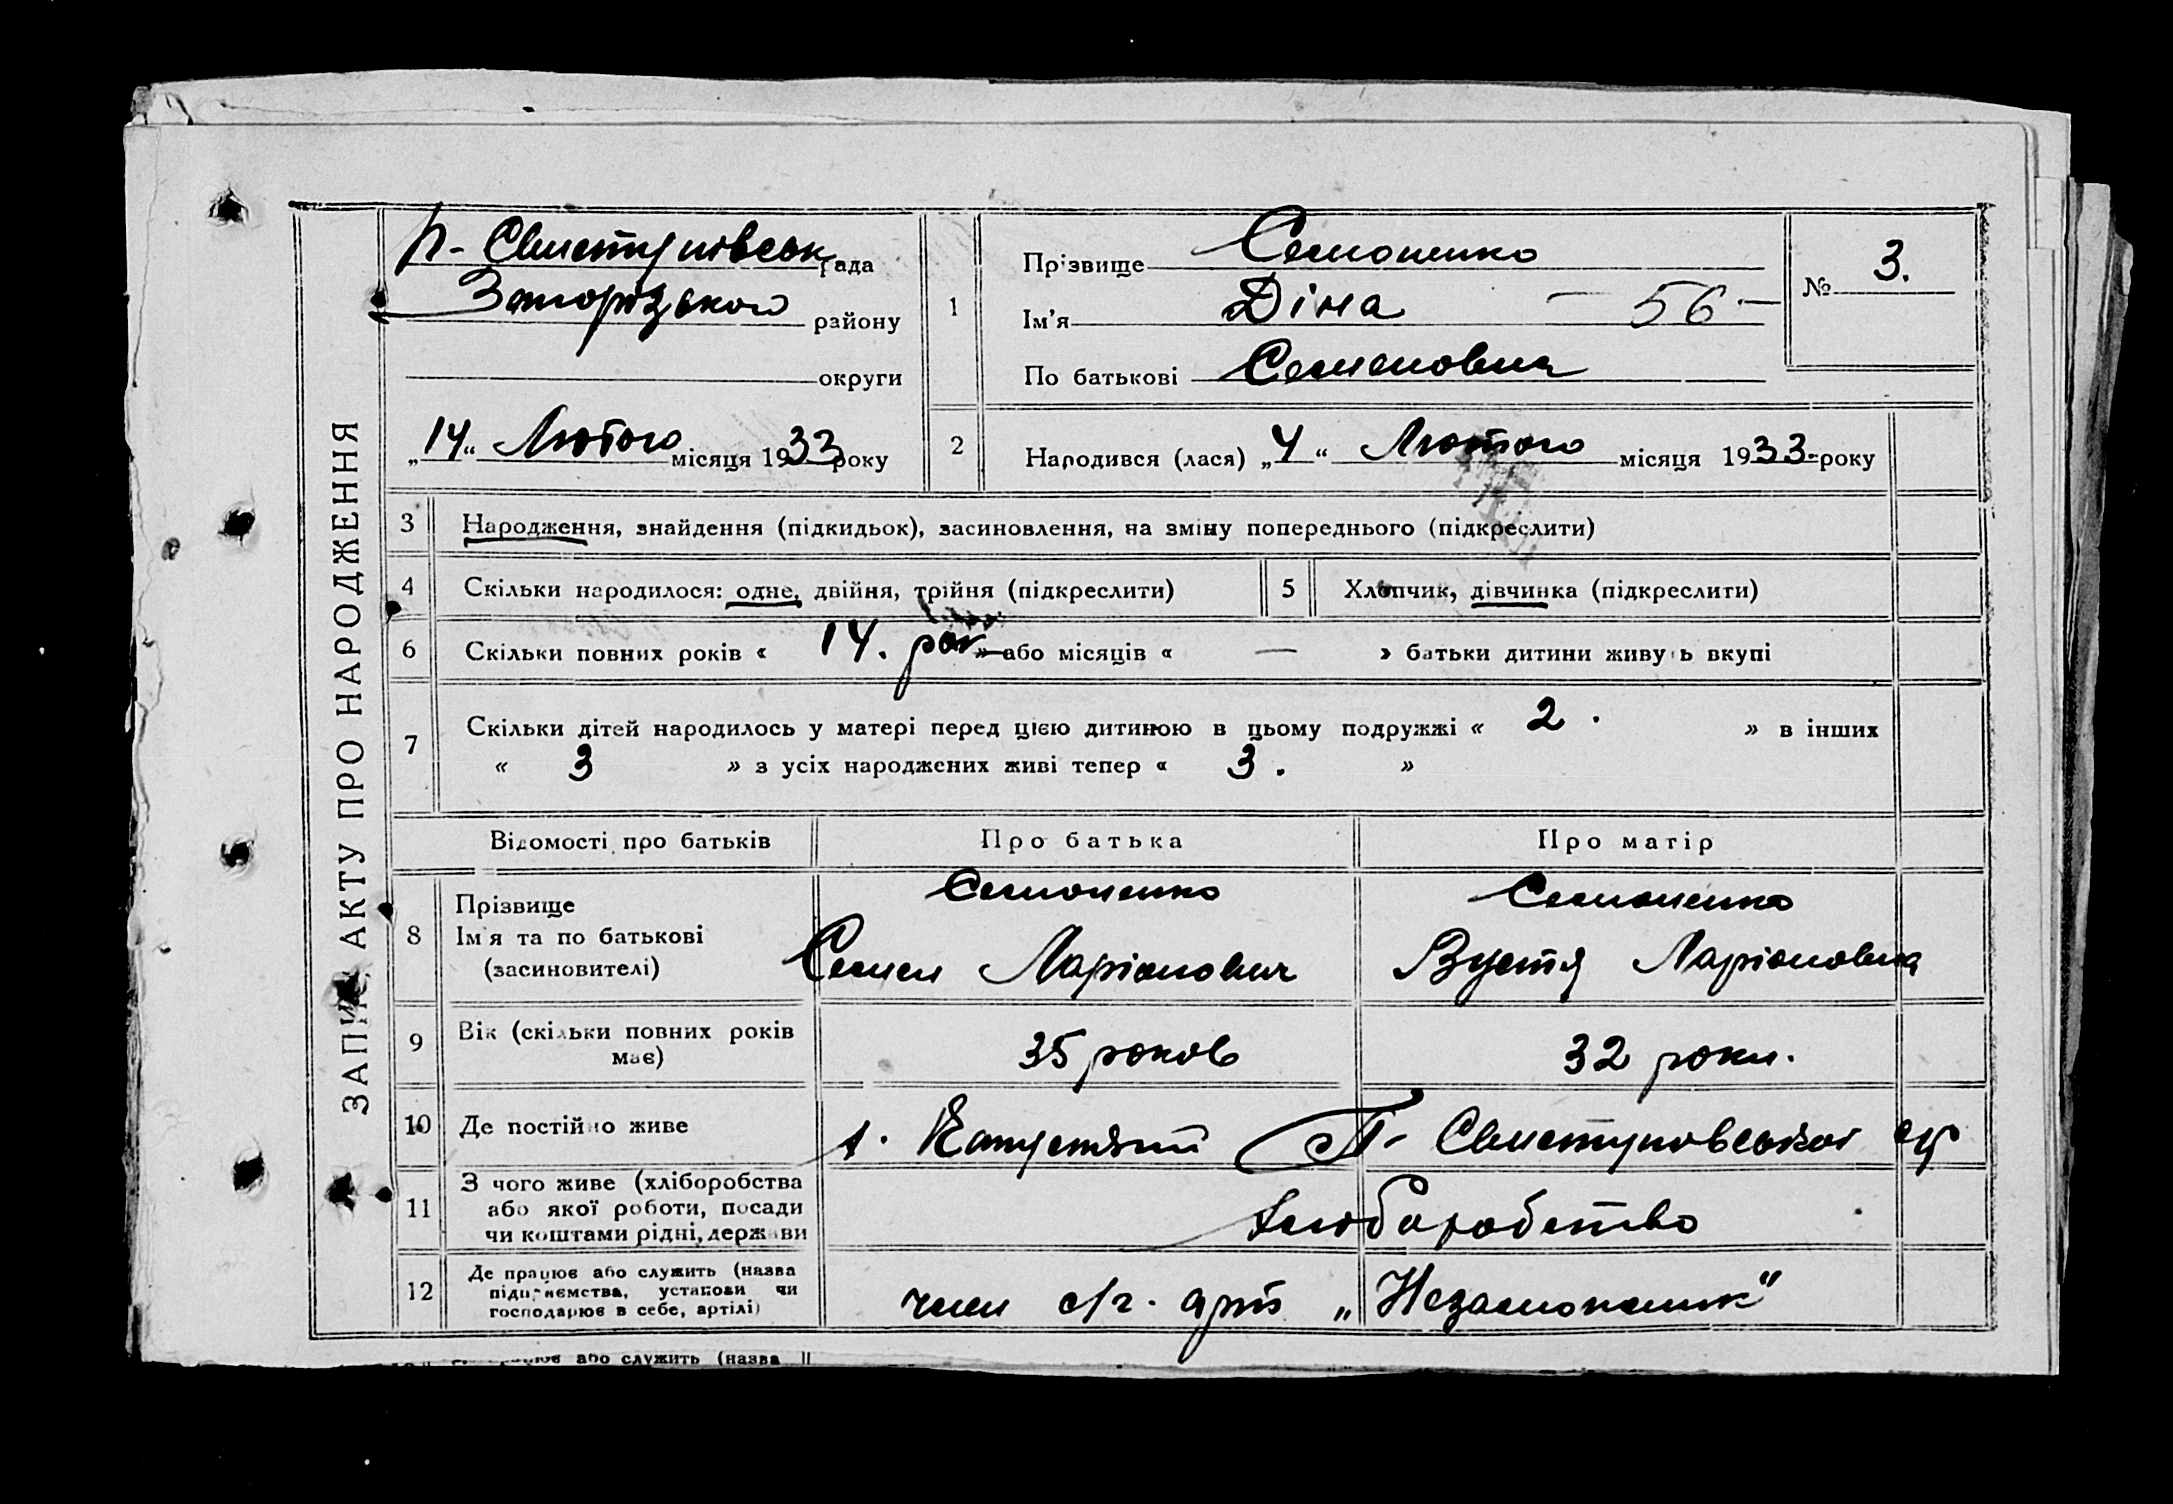 ЗАПИС АКТУ ПРО НАРОДЖЕННЯ
П- Свистунівськ рада
Запорізького району
округи
„14“ Лютого місяця 1933 року
1
Прізвище Семоненко
Ім'я Діна — 56 —
По батькові Семеновна
№ 3.
2
Народився (лася) „4“ Лютого місяця 1933 року
3 Народження, знайдення (підкидьок), засиновлення, на зміну попереднього (підкреслити)
4 Скільки народилося: одне, двійня, трійня (підкреслити)
5 Хлопчик, дівчинка (підкреслити)
6 Скільки повних років « 14. рок » або місяців « — » батьки дитини живуть вкупі
7 Скільки дітей народилось у матері перед цією дитиною в цьому подружжі « 2 . » в інших
« 3 » з усіх народжених живі тепер « 3 . »
Відомості про батьків Про батька Про матір
8 Прізвище
Ім'я та по батькові
(засиновителі)
Семоненко
Семен Ларіонович
Семоненко
Вустя Ларіоновна
9 Вік (скільки повних років
має)
35 роков
32 роки.
10 Де постійно живе
Капустяний П- Свистуновської с/р
11 З чого живе (хліборобства
або якої роботи, посади
чи коштами рідні, держави
хлюборобство
12 Де працює або служить (назва
підприємства, установи чи
господарює в себе, артілі)
член с/г. арт „Незаможник"
або служить (назва